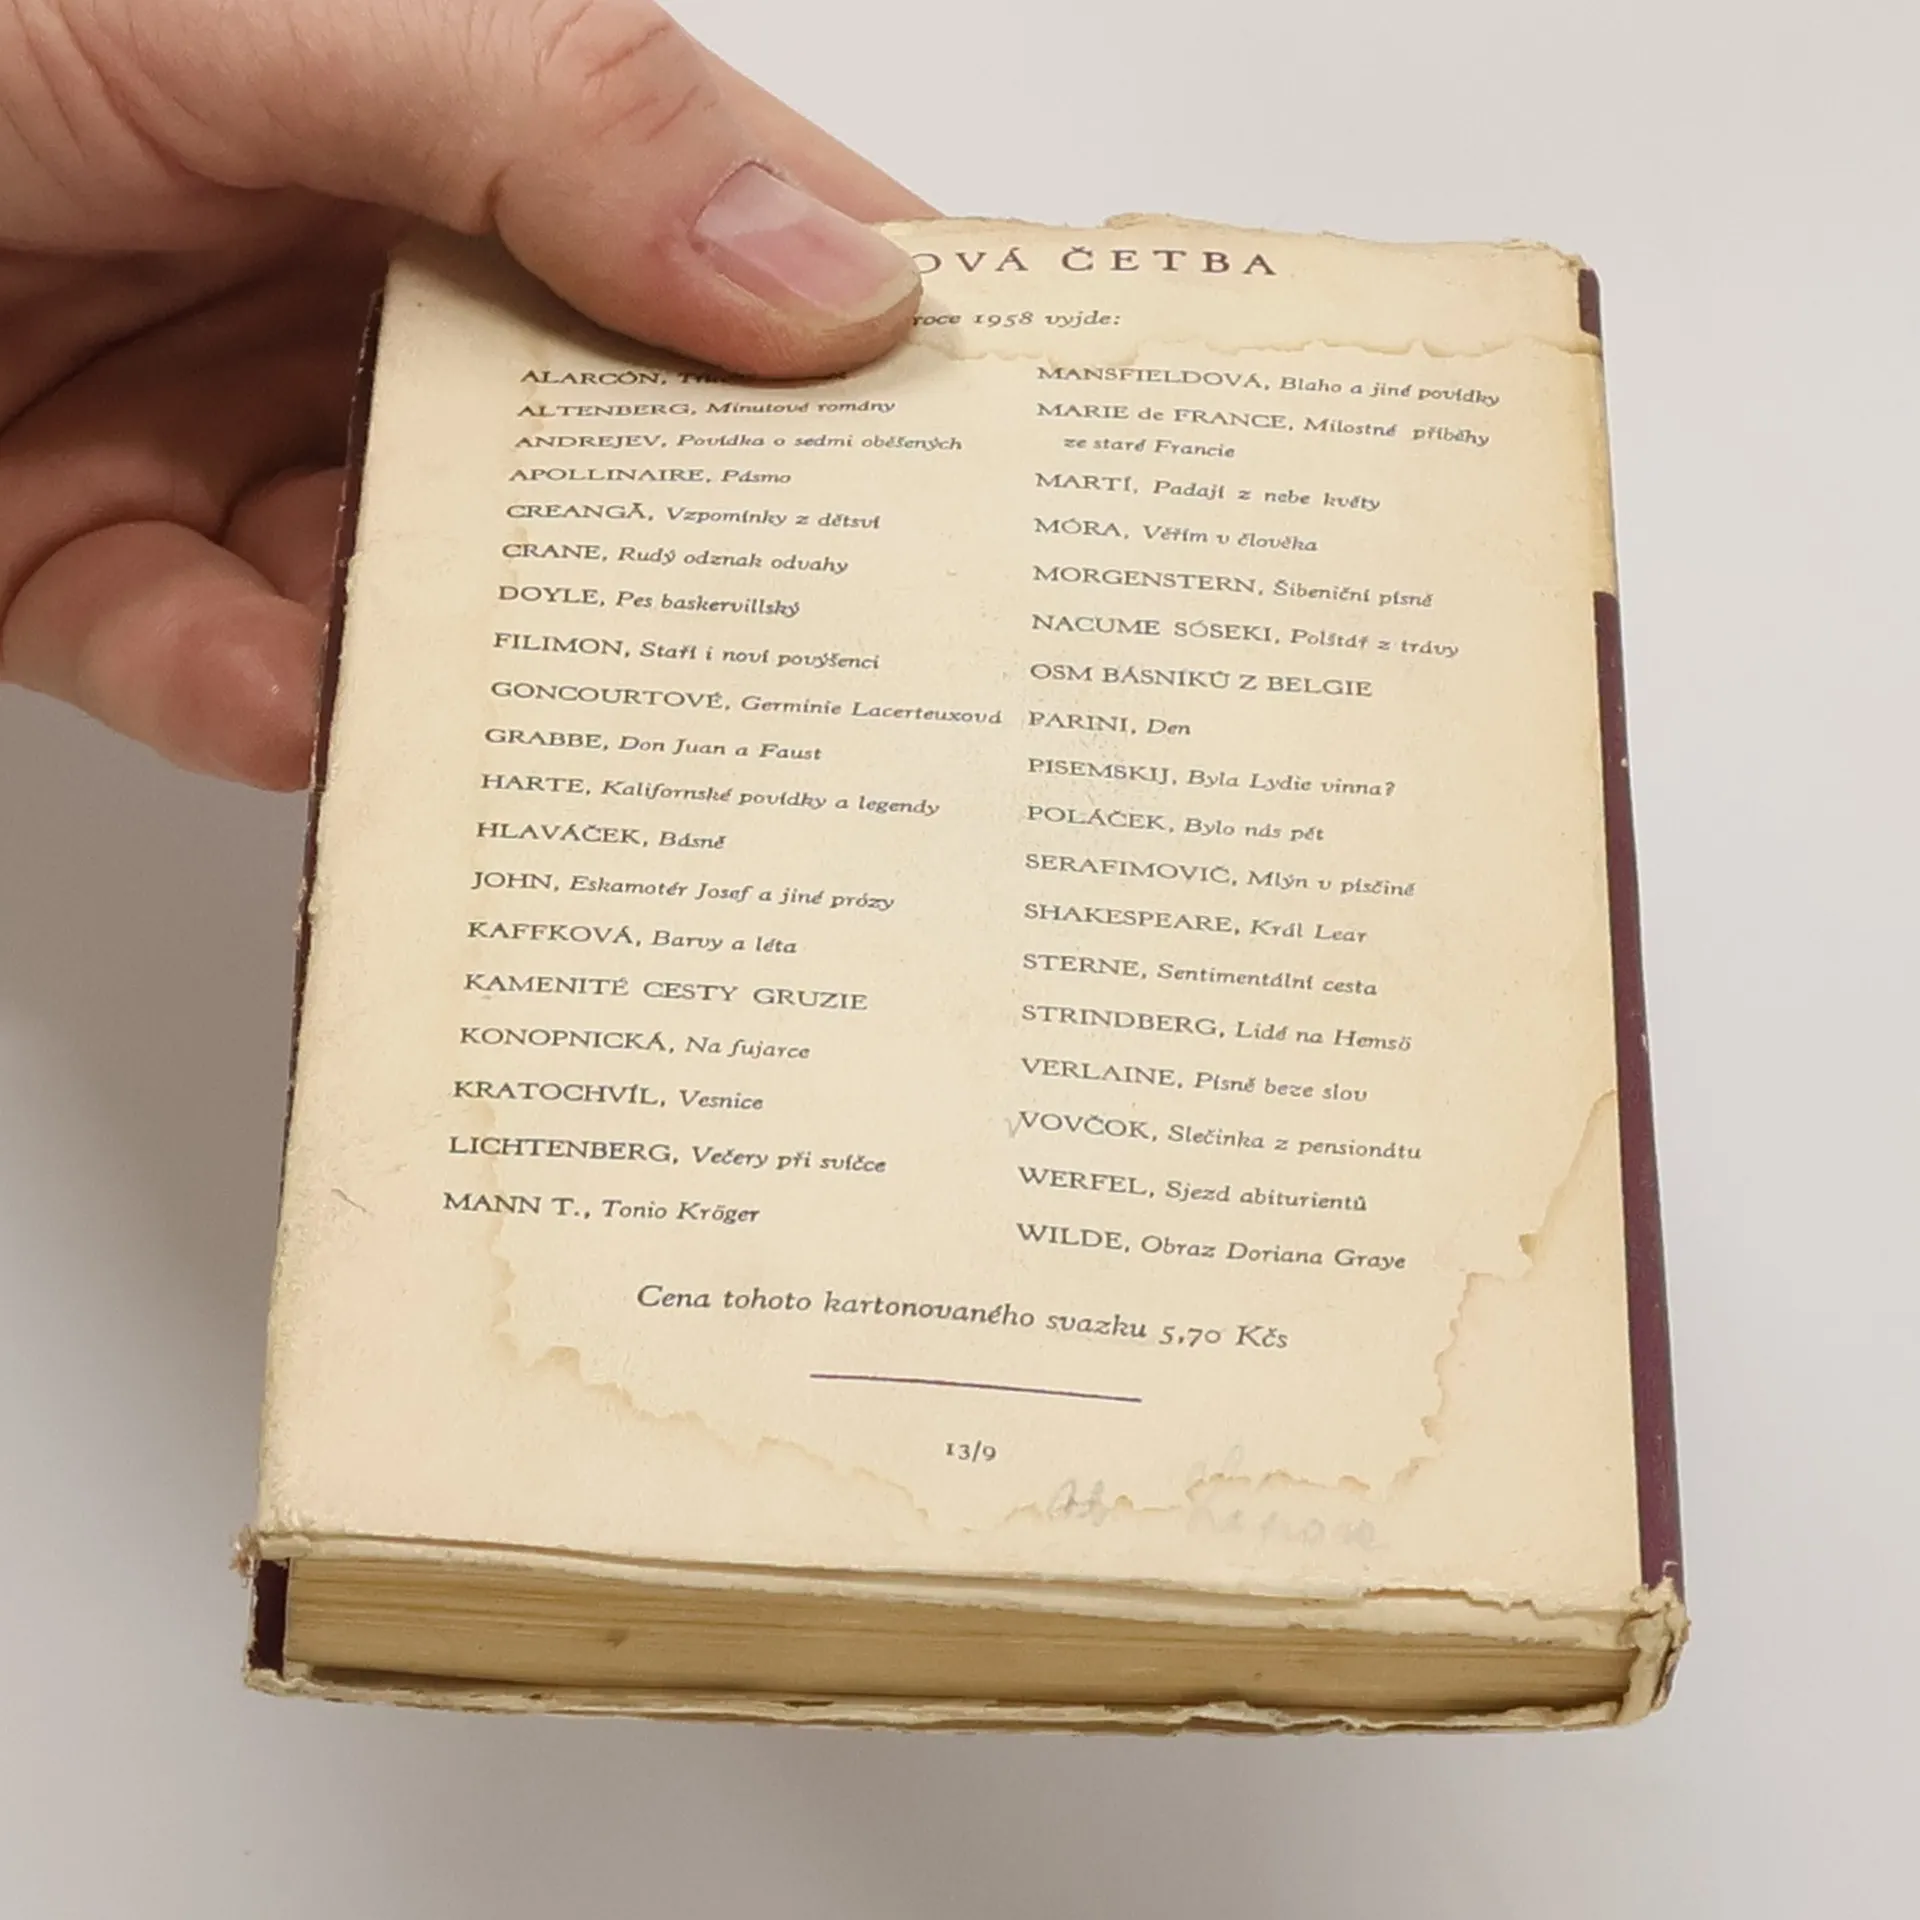 OVÁ ČETBA
roce 1958 vyjde:
ALARCÓN,
ALTENBERG, Minutové romány
ANDREJEV, Povídka o sedmi oběšených
APOLLINAIRE, Pásmo
CREANGĂ, Vzpomínky z dětsví
CRANE, Rudý odznak odvahy
DOYLE, Pes baskervillský
FILIMON, Staří i noví povýšenci
GONCOURTOVÉ, Germinie Lacerteuxová
GRABBE, Don Juan a Faust
HARTE, Kalifornské povídky a legendy
HLAVÁČEK, Básně
JOHN, Eskamotér Josef a jiné prózy
KAFFKOVÁ, Barvy a léta
KAMENITÉ CESTY GRUZIE
KONOPNICKÁ, Na fujarce
KRATOCHVÍL, Vesnice
LICHTENBERG, Večery při svíčce
MANN T., Tonio Kröger
MANSFIELDOVÁ, Blaho a jiné povídky
MARIE de FRANCE, Milostné příběhy
ze staré Francie
MARTÍ, Padají z nebe květy
MÓRA, Věřím v člověka
MORGENSTERN, Šibeniční písně
NACUME SÓSEKI, Polštář z trávy
OSM BÁSNÍKŮ Z BELGIE
PARINI, Den
PISEMSKIJ, Byla Lydie vinna?
POLÁČEK, Bylo nás pět
SERAFIMOVIČ, Mlýn v písčině
SHAKESPEARE, Král Lear
STERNE, Sentimentální cesta
STRINDBERG, Lidé na Hemsö
VERLAINE, Písně beze slov
VOVČOK, Slečinka z pensionátu
WERFEL, Sjezd abiturientů
WILDE, Obraz Doriana Graye
Cena tohoto kartonovaného svazku 5,70 Kčs
13/9